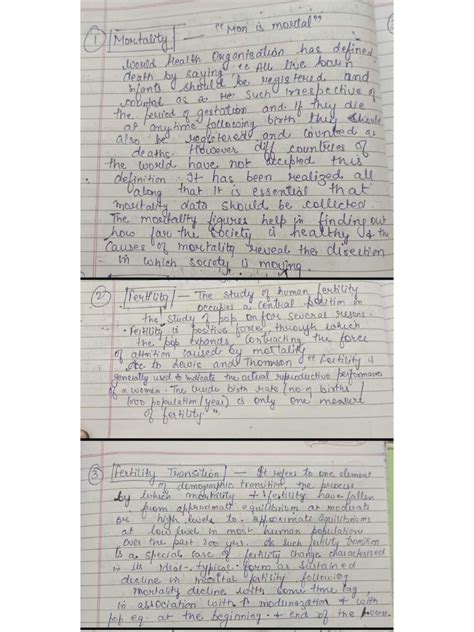 ① Mortality — "Man is mortal"
World Health Organisation has defined
death by saying "All live born
infants should be registered and
counted as a such irrespective of
the period of gestation and if they die
at anytime following birth they should
also be registered and counted as
deaths. However diff countries of
the world have not accepted this
definition. It has been realized all
along that it is essential that
mortality data should be collected.
The mortality figures help in finding out
how far the society is healthy & the
causes of mortality reveal the direction
in which society is moving.
② Fertility — The study of human fertility
occupies a central position in
the study of pop for several reasons.
Fertility is positive force through which
the pop expands, the force
of attrition caused by mortality
Acc to Lewis and Thomson "Fertility is
generally used to indicate the actual reproductive performance
of a women. The crude birth rate (no. of births /
1000 population/year) is only one measure
of fertility".
③ Fertility Transition — It refers to one element
of demographic transition, the process
by which mortality & fertility have fallen
from approximate equilibrium at moderate
or high levels to approximate equilibriums
at low level in most human population
over the past 200 years. As such fertility transition
is a special case of fertility change characterized
in its ideal-typical form as sustained
decline in marital fertility following
mortality decline with some time lag
in association with & with
pop eq. at the beginning & end of the